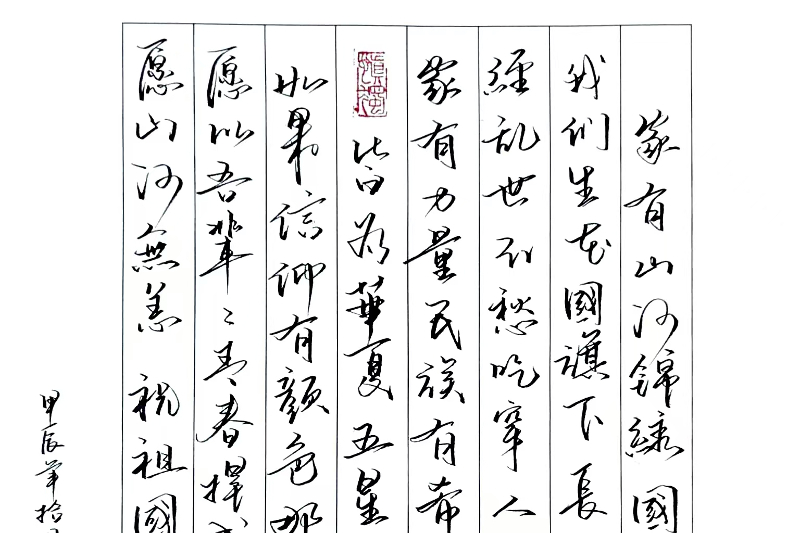 家有山河錦綉國
我们生在國旗下長
經乱世不愁吃穿人
家有力量民族有希
皆为華夏五星
如果信仰有顏色那
愿以吾輩之青春捍
愿山河無恙 祝祖國
甲辰年拾